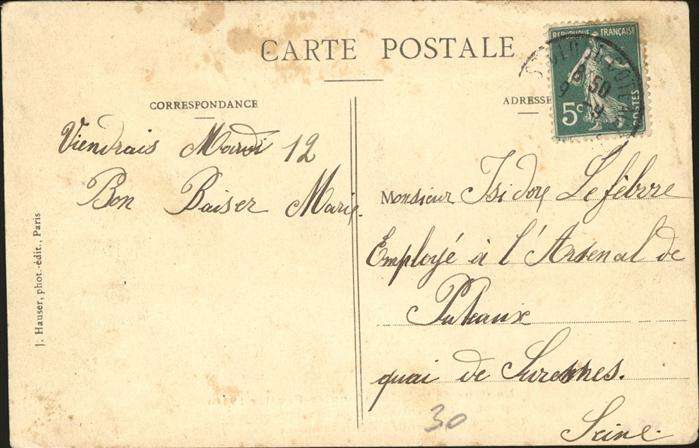 CARTE POSTALE
CORRESPONDANCE
ADRESSE
RÉPUBLIQUE FRANÇAISE
5c
POSTES
Viendrais Mardi 12
Bon Baiser Marie.
Monsieur Isidore Lefèbvre
Employé à l'Arsenal de
Puteaux
quai de Suresnes.
Seine
30
J. Hauser, phot.-édit., Paris